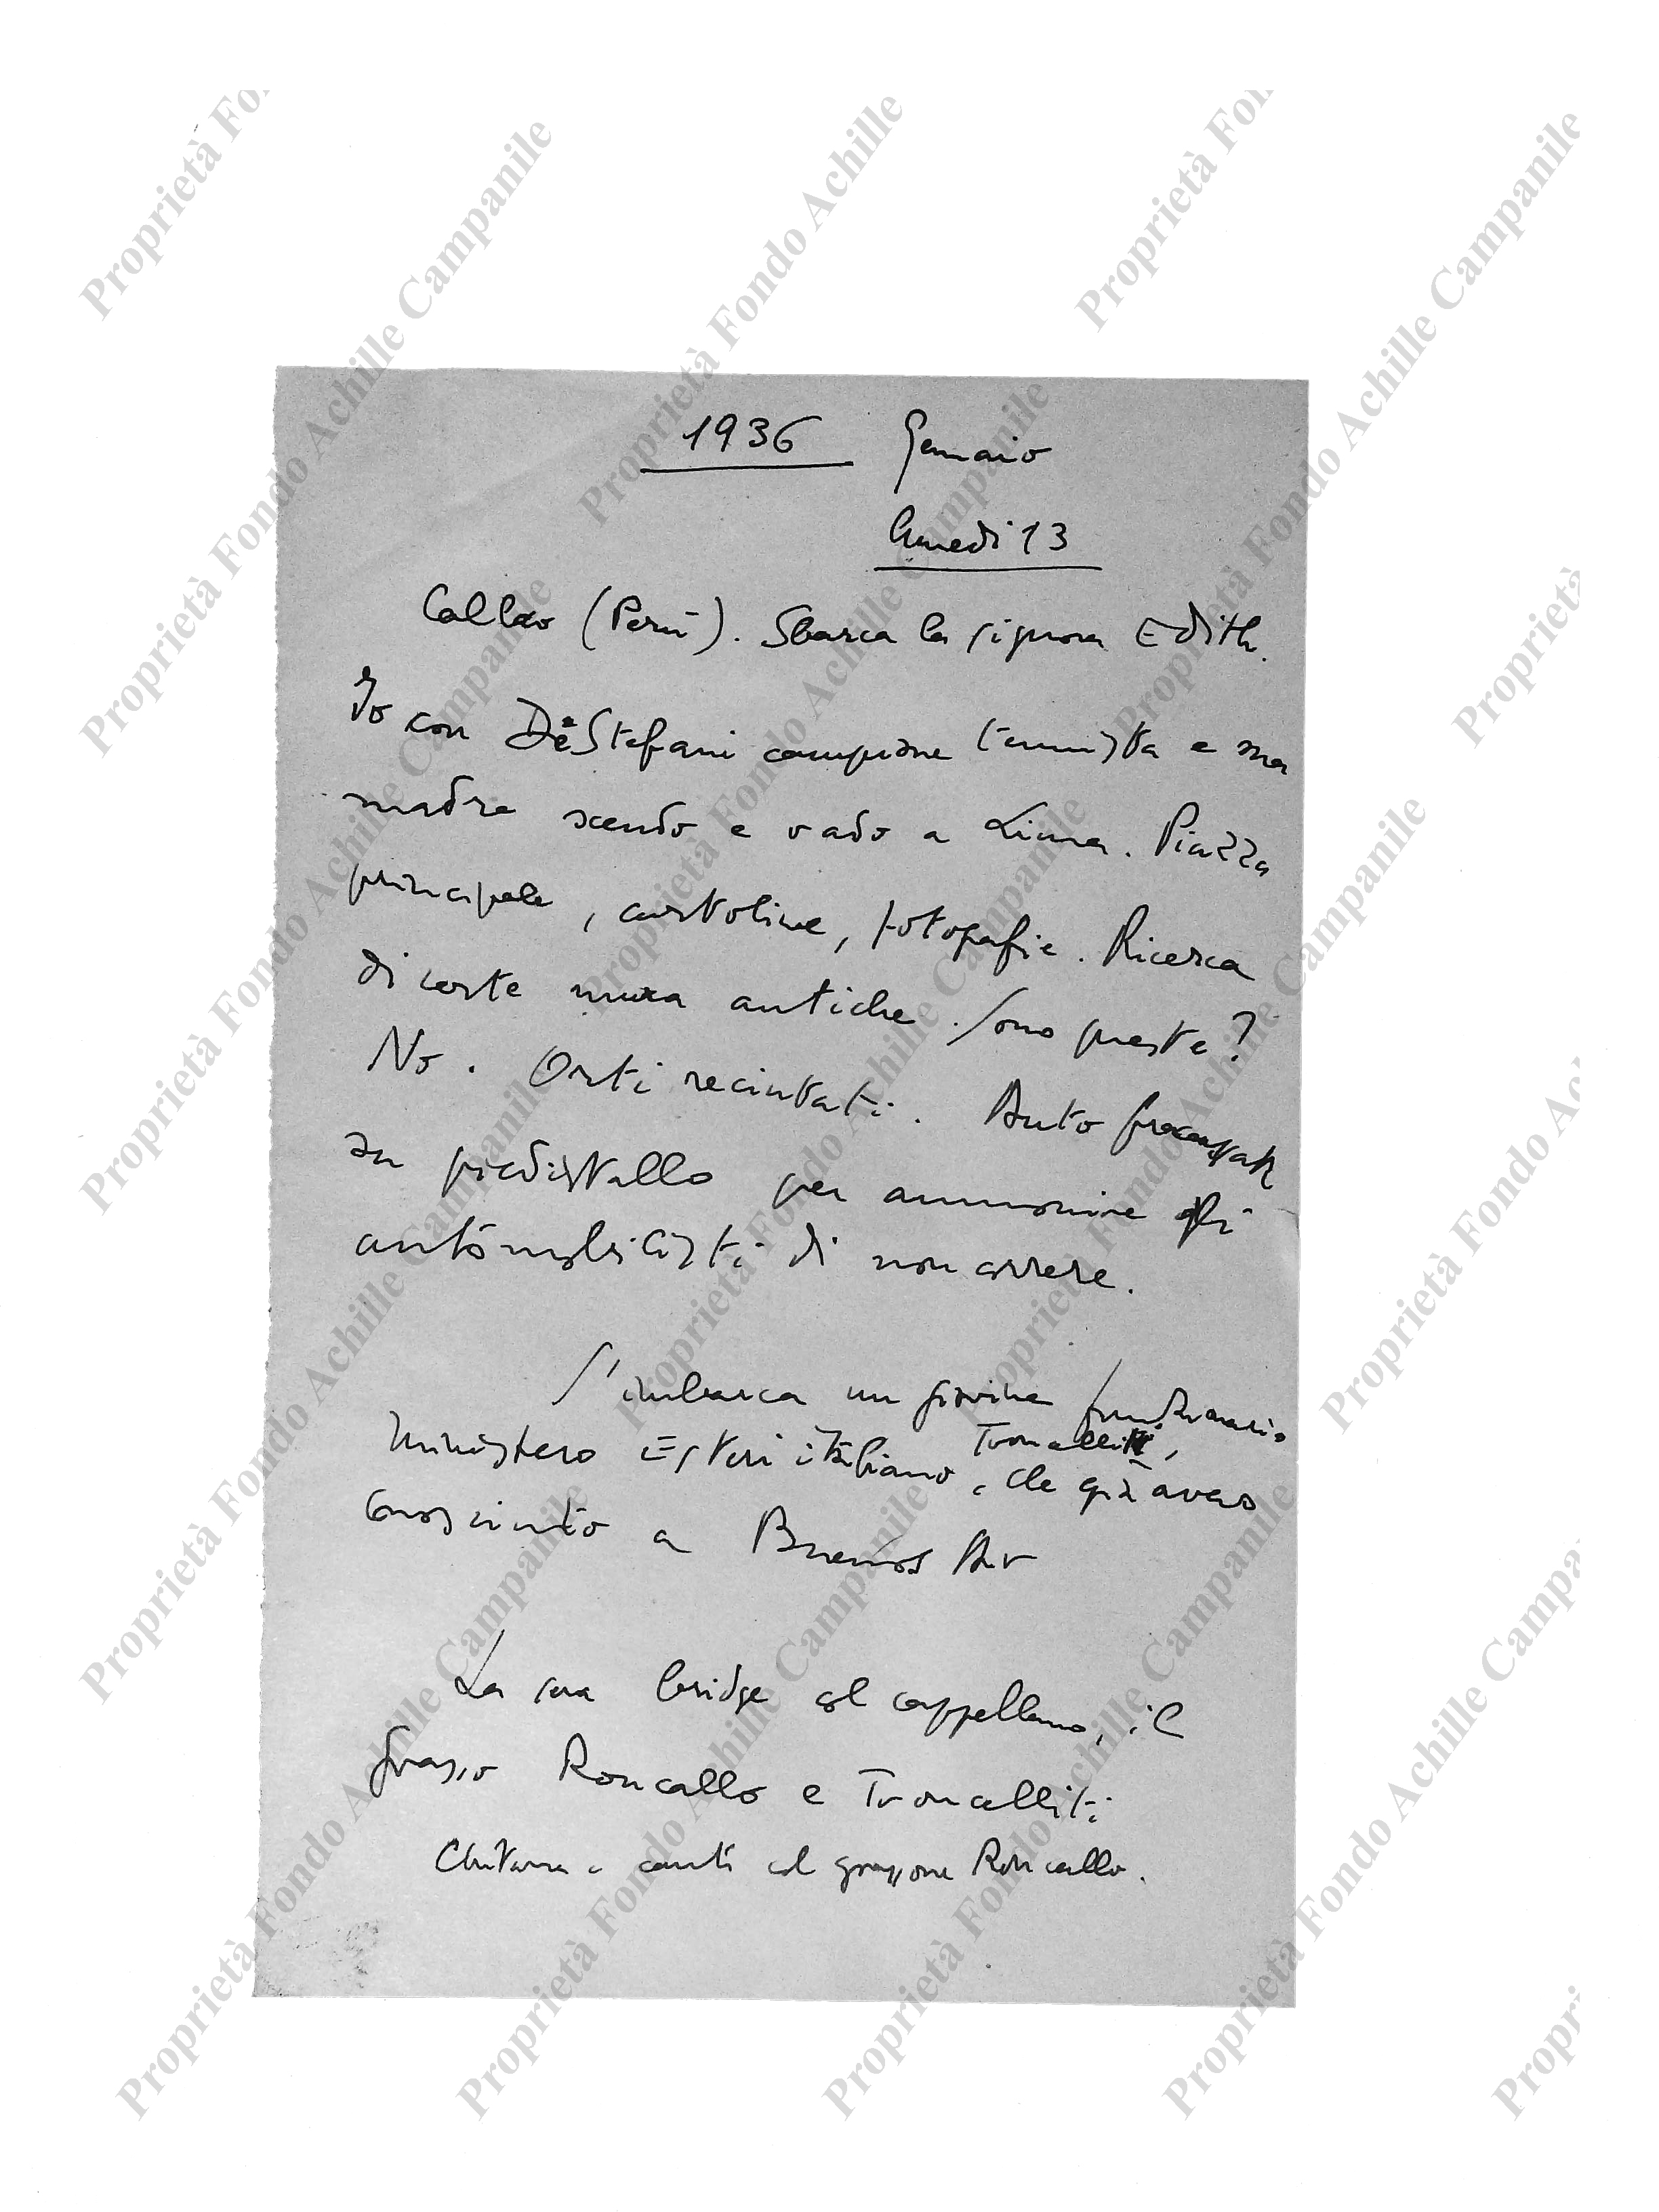 1936 Gennaio
lunedì 13
Callao (Perù). Sbarca la signora Edith.
Io con De Stefani campione tennista e sua
madre scendo e vado a Lima. Piazza
principale, cartoline, fotografie. Ricerca
di certe mura antiche. Sono queste?
No. Orti recintati. Auto fracassate
su piedistallo per ammonire gli
automobilisti di non correre.
S'imbarca un giovine funzionario
Ministero Esteri italiano, Troncalliti, che già avevo
conosciuto a Buenos
La sera bridge col cappellano, il
grasso Roncallo e Troncalliti
Chitarra e canti col grassone Roncallo.
Proprietà Fondo Achille Campanile